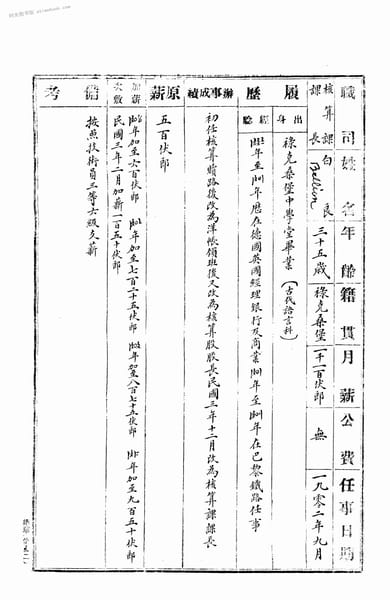 職司 姓名 年齡 籍貫 月薪 公費 任事日期
核算課課長 白良 Bellion 三十五歲 祿克桑堡 一千一百伕郎 無 一九零二年九月
履歷
出身 祿克桑堡中學堂畢業(古代語言科)
經驗 年至 年歷在德國英國經理銀行及商業 年至 年在巴黎鐵路任事
辦事成績 初任核算贖路後改為洋帳領班後又改為核算股股長民國三年十二月改為核算課課長
原薪 五百伕郎
加薪次數 年加至六百伕郎 年加至七百二十五伕郎 年加至八百七十五伕郎 年加至九百五十伕郎
民國三年二月加薪一百五十伕郎
備考 按照技術員三等六級久薪